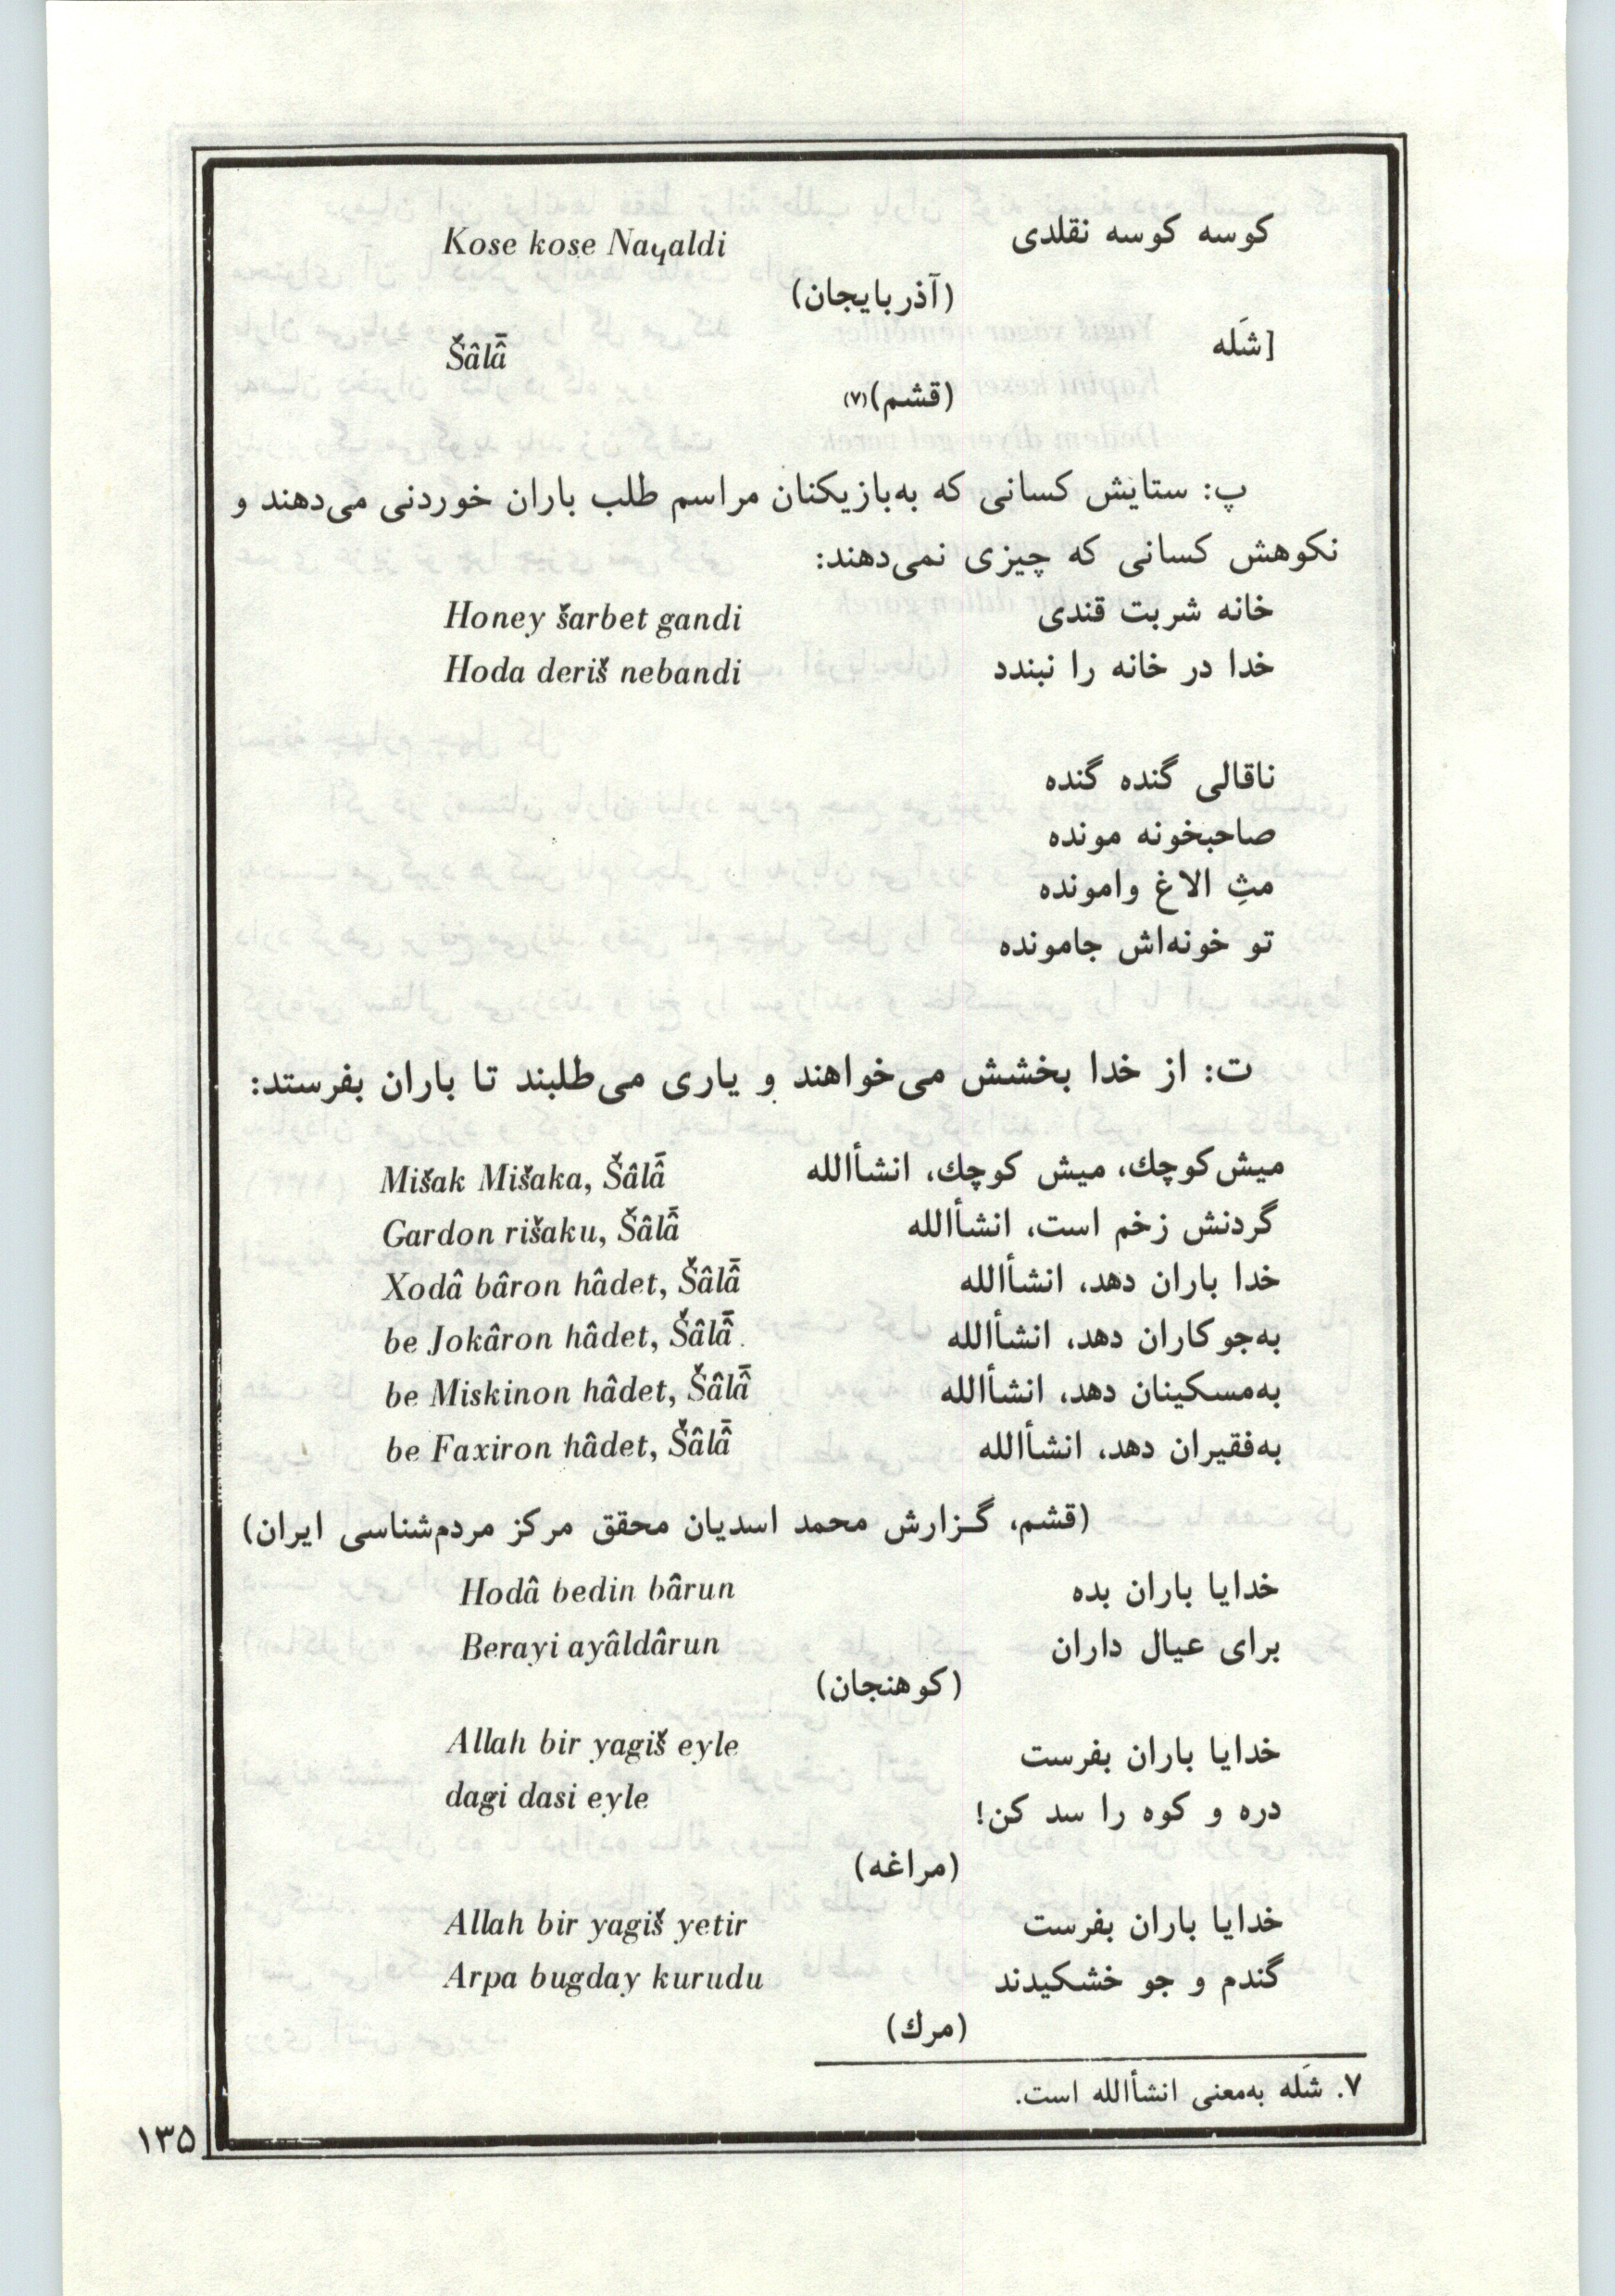 کوسه کوسه نقلدی Kose kose Nayaldi
(آذربایجان)
[شَله Šâlâ̄
(قشم)(۷)
پ: ستایش کسانی که به‌بازیکنان مراسم طلب باران خوردنی می‌دهند و
نکوهش کسانی که چیزی نمی‌دهند:
خانه شربت قندی Honey šarbet gandi
خدا در خانه را نبندد Hoda deriš nebandi
ناقالی گنده گنده
صاحبخونه مونده
مثِ الاغ وامونده
تو خونه‌اش جامونده
ت: از خدا بخشش می‌خواهند و یاری می‌طلبند تا باران بفرستد:
میش‌کوچك، میش کوچك، انشأالله Mišak Mišaka, Šâlâ̄
گردنش زخم است، انشأالله Gardon rišaku, Šâlâ̄
خدا باران دهد، انشأالله Xodâ bâron hâdet, Šâlâ̄
به‌جوکاران دهد، انشأالله be Jokâron hâdet, Šâlâ̄
به‌مسکینان دهد، انشأالله be Miskinon hâdet, Šâlâ̄
به‌فقیران دهد، انشأالله be Faxiron hâdet, Šâlâ̄
(قشم، گزارش محمد اسدیان محقق مرکز مردم‌شناسی ایران)
خدایا باران بده Hodâ bedin bârun
برای عیال داران Berayi ayâldârun
(کوهنجان)
خدایا باران بفرست Allah bir yagiš eyle
دره و کوه را سد کن! dagi dasi eyle
(مراغه)
خدایا باران بفرست Allah bir yagiš yetir
گندم و جو خشکیدند Arpa bugday kurudu
(مرك)
۷. شَله به‌معنی انشأالله است.
۱۳۵